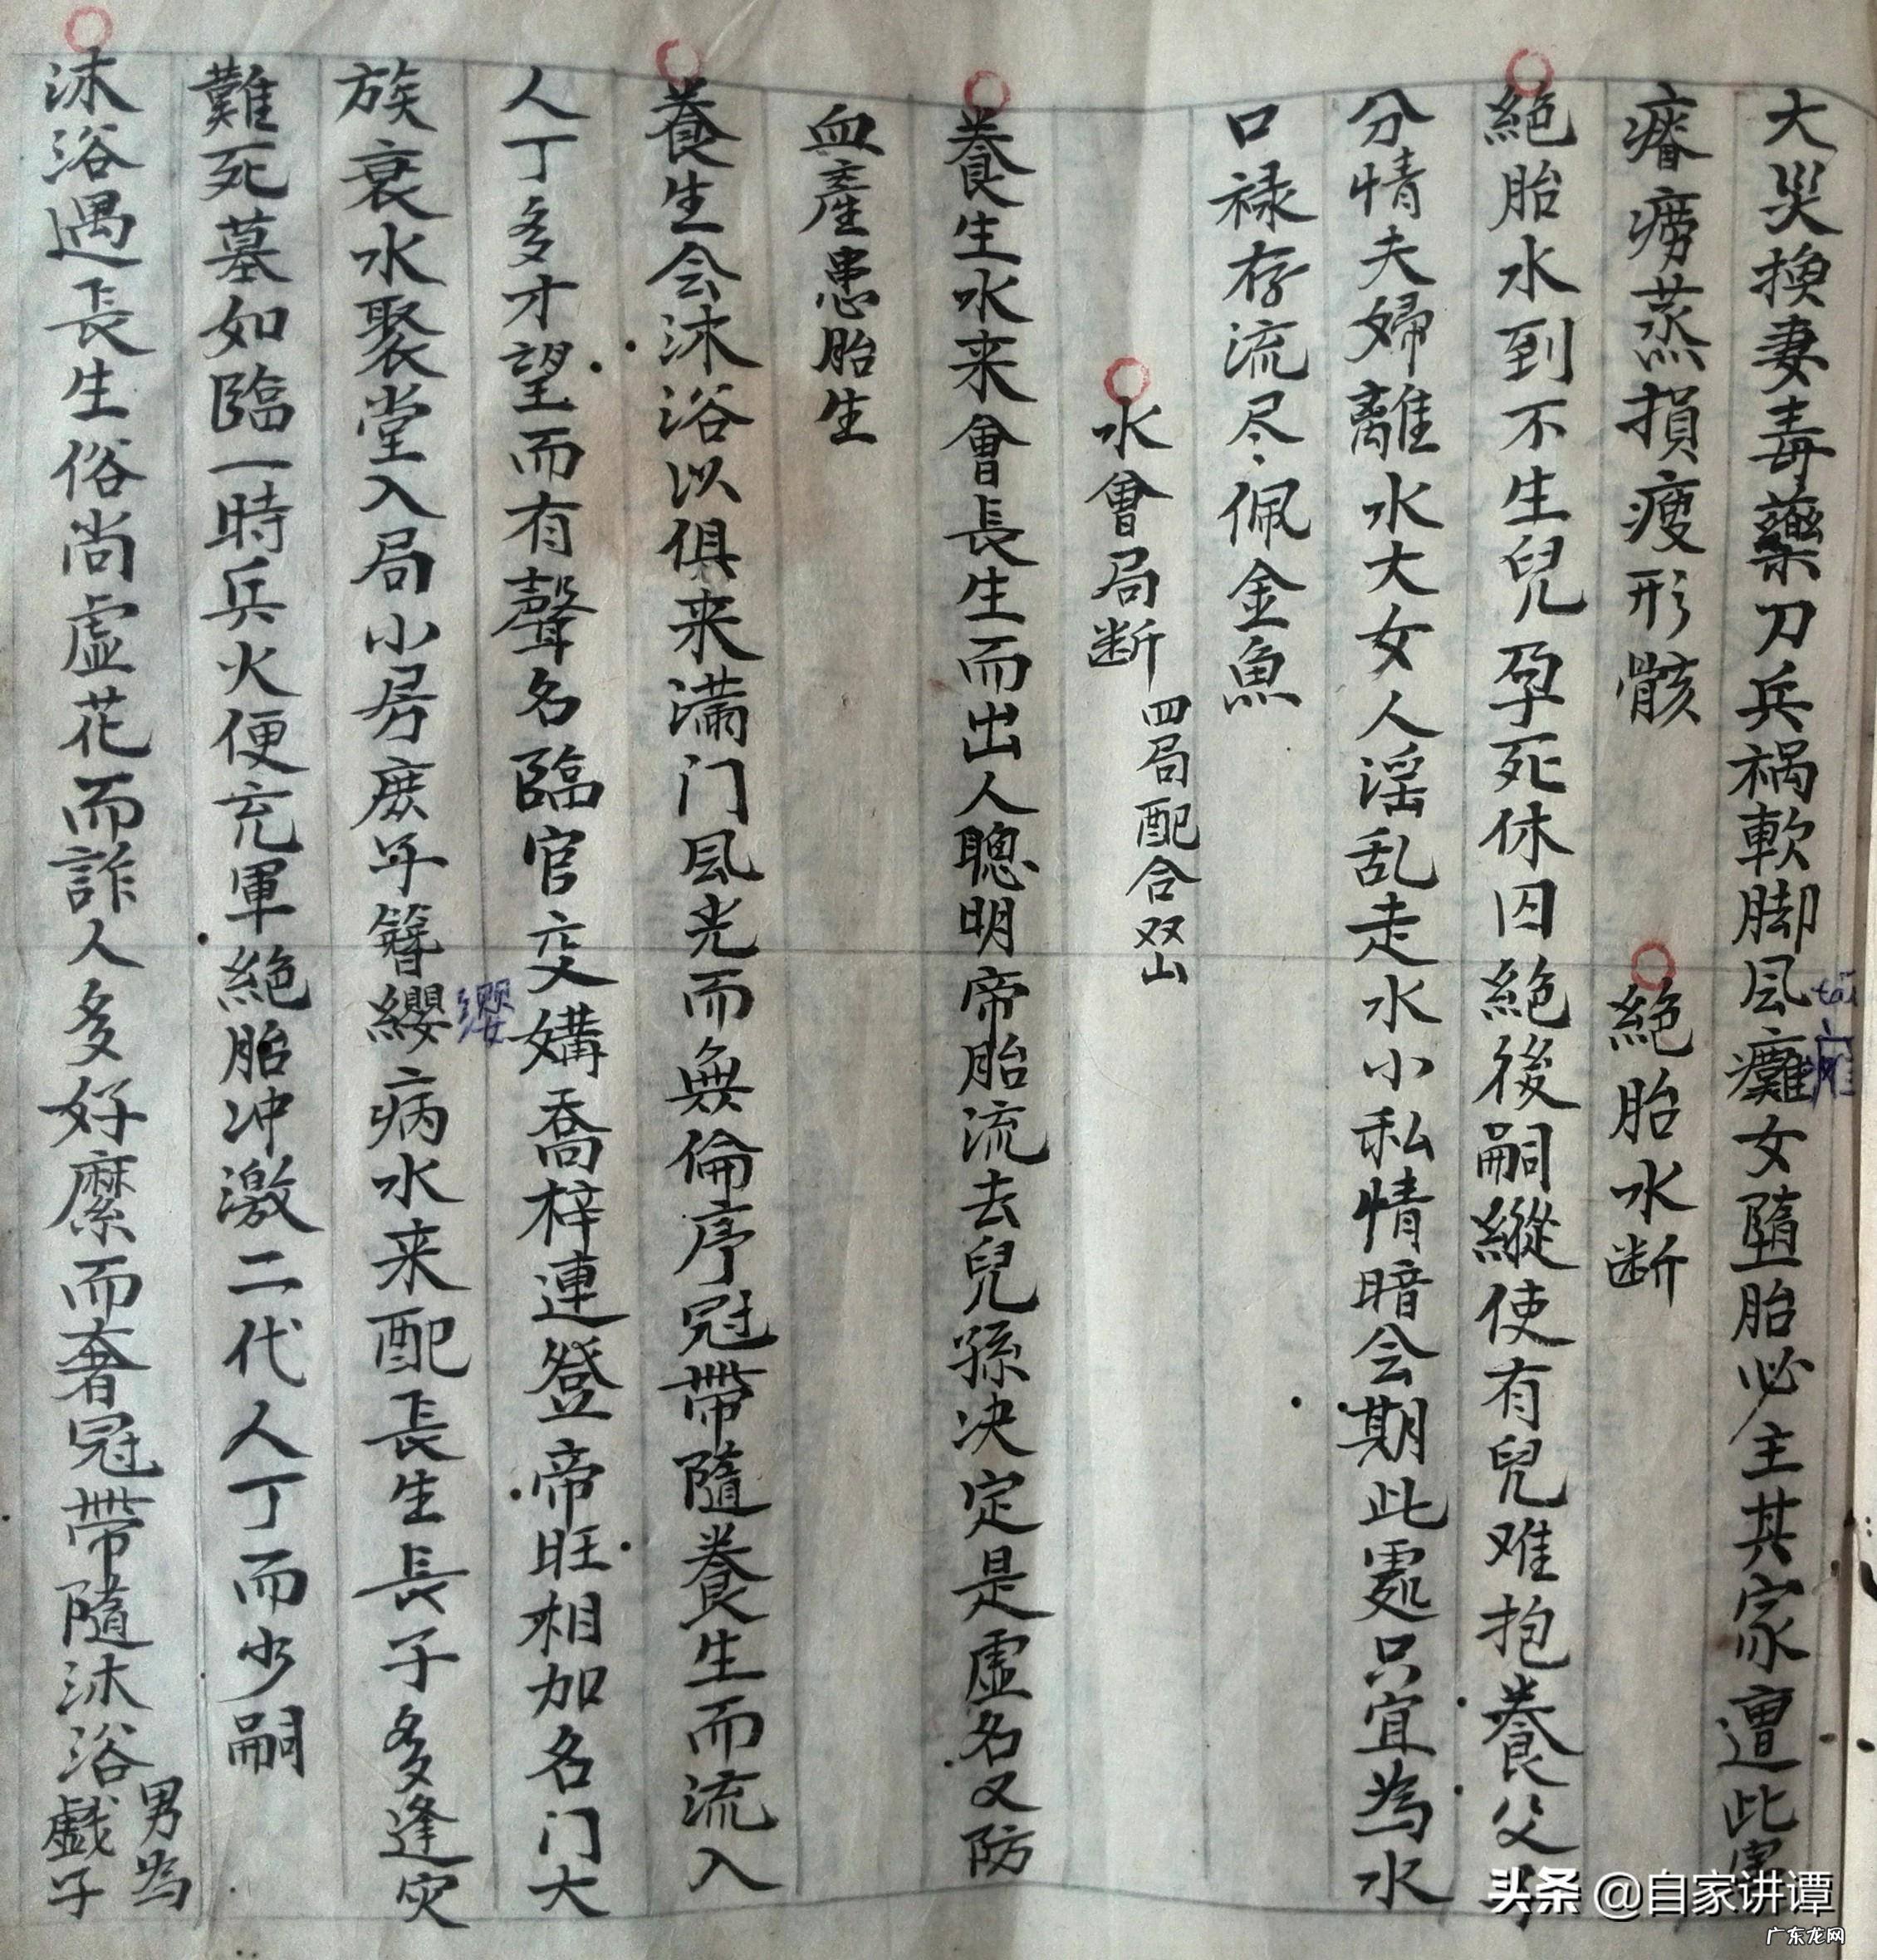 大災換妻毒藥刀兵禍軟脚风癱女墮胎必主其家遭此
瘠痨蒸損瘦形骸
絕胎水断
絕胎水到不生兒孕死休囚絕後嗣縱使有兒难抱養父
分情夫婦離水大女人淫乱走水小私情暗会期此處只宜為水
口禄存流尽佩金魚
水會局断 四局配合双山
養生水来會長生而出人聰明帝胎流去兒孫决定是虛名又防
血產患胎生
養生会沐浴以俱来满门风光而無倫序冠帶隨養生而流入
人丁多才望而有聲名臨官交媾喬梓連登帝旺相加名门大
族衰水聚堂入局小房庶子簪纓病水来配長生長子多逢灾
纓
難死墓如臨一時兵火便充軍絕胎冲激二代人丁而少嗣
沐浴遇長生俗尚虛花而詐人多好縻而奢冠帶隨沐浴男為戲子
头条 @自家讲谭
广东龙网